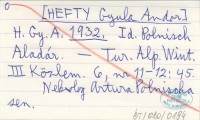 [HEFTY Gyula Andor]
H. Gy. A. 1932. Id. Polnisch
Aladár. — Tur. Alp. Wint.
III Közlem. 6, nr. 11-12: 45.
Nekrolog Artura Polnischa
sen.